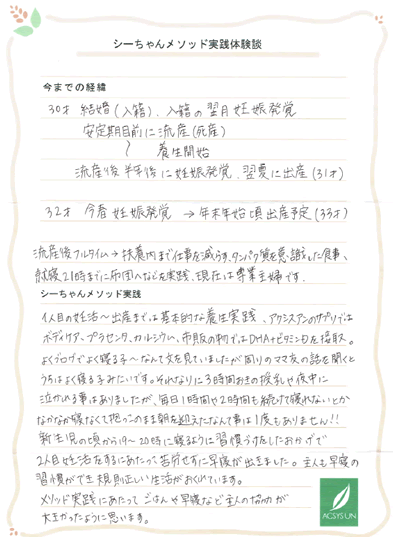 シーちゃんメソッド実践体験談
今までの経緯
30才 結婚(入籍)、入籍の翌月妊娠発覚
安定期目前に流産(死産)
養生開始
流産後半年後に妊娠発覚、翌夏に出産(31才)
32才 今春妊娠発覚 → 年末年始頃出産予定(33才)
流産後フルタイム→扶養内まで仕事を減らす、タンパク質を意識した食事、
就寝21時までに布団へなどを実践、現在は専業主婦です。
シーちゃんメソッド実践
1人目の妊活〜出産までは基本的な養生実践、アクシスアンのサプリでは
ボディケア、プラセンタ、カルシウム、市販の物ではDHA+ビタミンDを摂取。
よくブログでよく寝る子〜なんて文を見ていましたが周りのママ友の話を聞くと
うちはよく寝る子みたいです。それなりに3時間おきの授乳や夜中に
泣かれる事はありましたが、毎日1時間や2時間も続けて寝れないとか
なかなか寝なくて抱っこのまま朝を迎えたなんて事は1度もありません!!
新生児の頃から19〜20時に寝るように習慣づけたおかげで
2人目妊活をするにあたって苦労せずに早寝が出来ました。主人も早寝の
習慣ができ規則正しい生活がおくれています。
メソッド実践にあたって ごはんや早寝など主人の協力が
大きかったように思います。
ACSYS UN